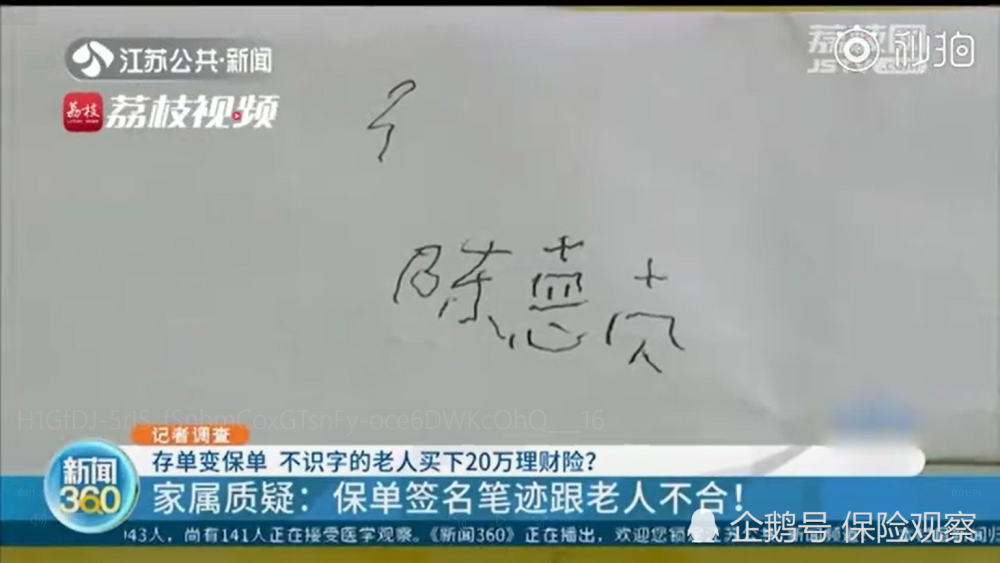 江苏公共·新闻
荔枝网
JS .com
秒拍
荔枝视频
陈
记者调查
存单变保单 不识字的老人买下20万理财险？
新闻360
家属质疑：保单签名笔迹跟老人不合！
43人，尚有141人正在接受医学观察。《新闻360》正在播出，欢迎您锁
企鹅号 保险观察